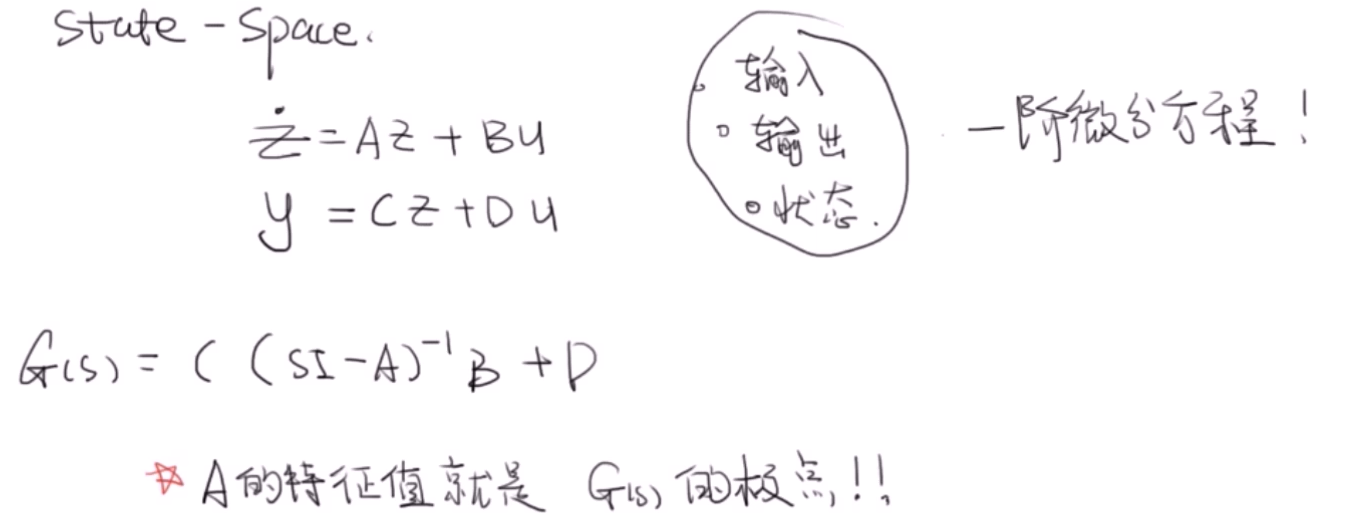 State-Space.
ż=Az+Bu
y=Cz+Du
输入
输出
状态.
一阶微分方程!
G(s)=C(sI-A)⁻¹B+D
A的特征值就是 G(s)的极点!!